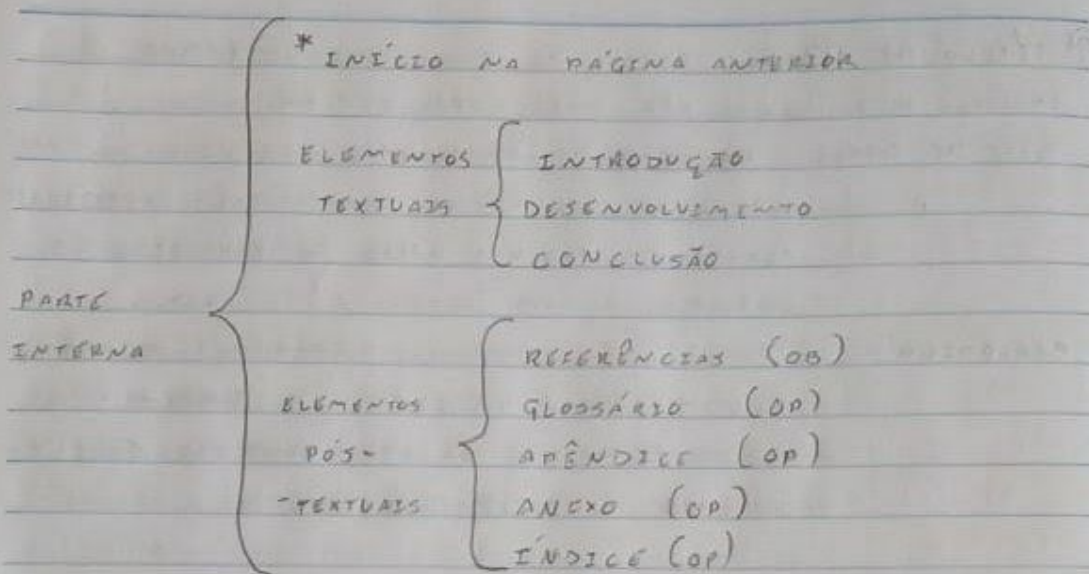 * INÍCIO NA PÁGINA ANTERIOR
ELEMENTOS
TEXTUAIS
INTRODUÇÃO
DESENVOLVIMENTO
CONCLUSÃO
PARTE
INTERNA
ELEMENTOS
PÓS-
-TEXTUAIS
REFERÊNCIAS (OB)
GLOSSÁRIO (OP)
APÊNDICE (OP)
ANEXO (OP)
ÍNDICE (OP)